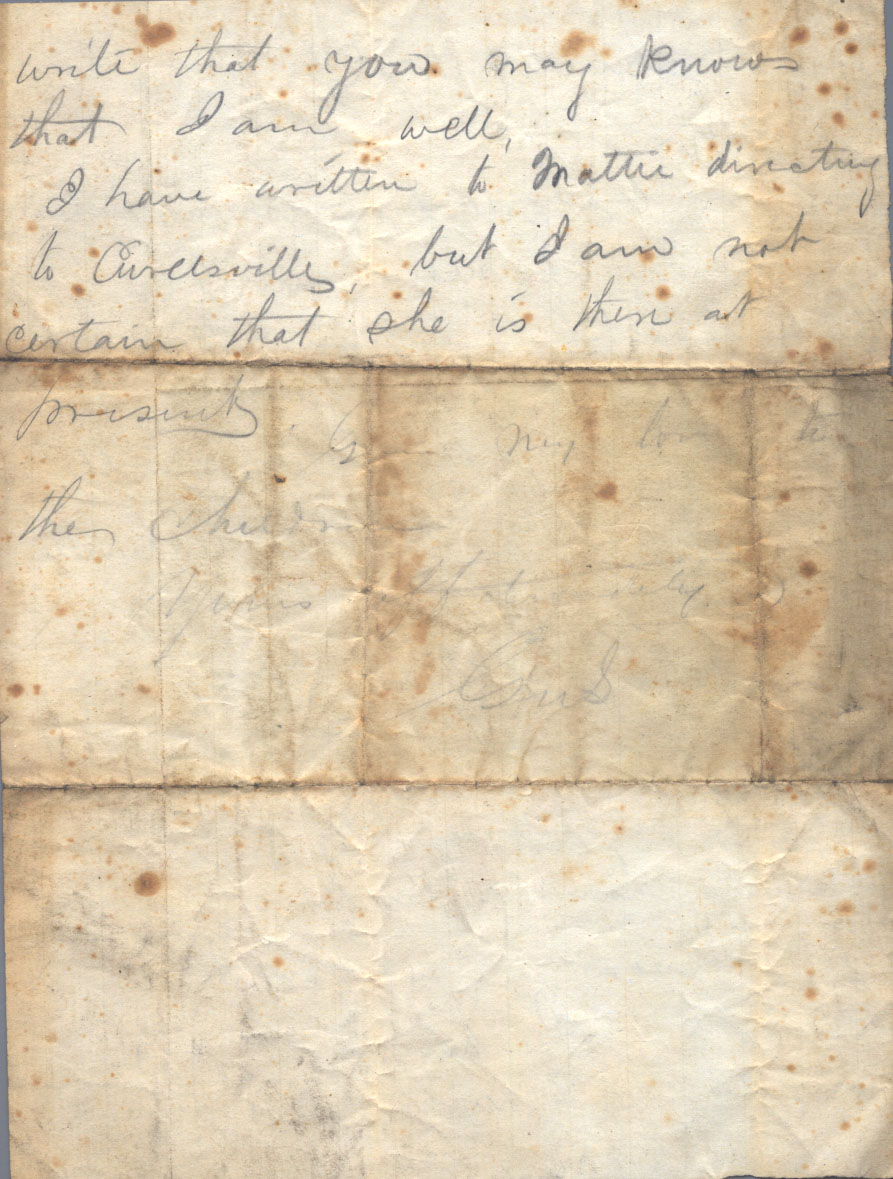 write that you may know
that I am well,
I have written to Mattie directing
to Curdsville, but I am not
certain that she is there at
present. Give my love to
the children
Yours affectionately